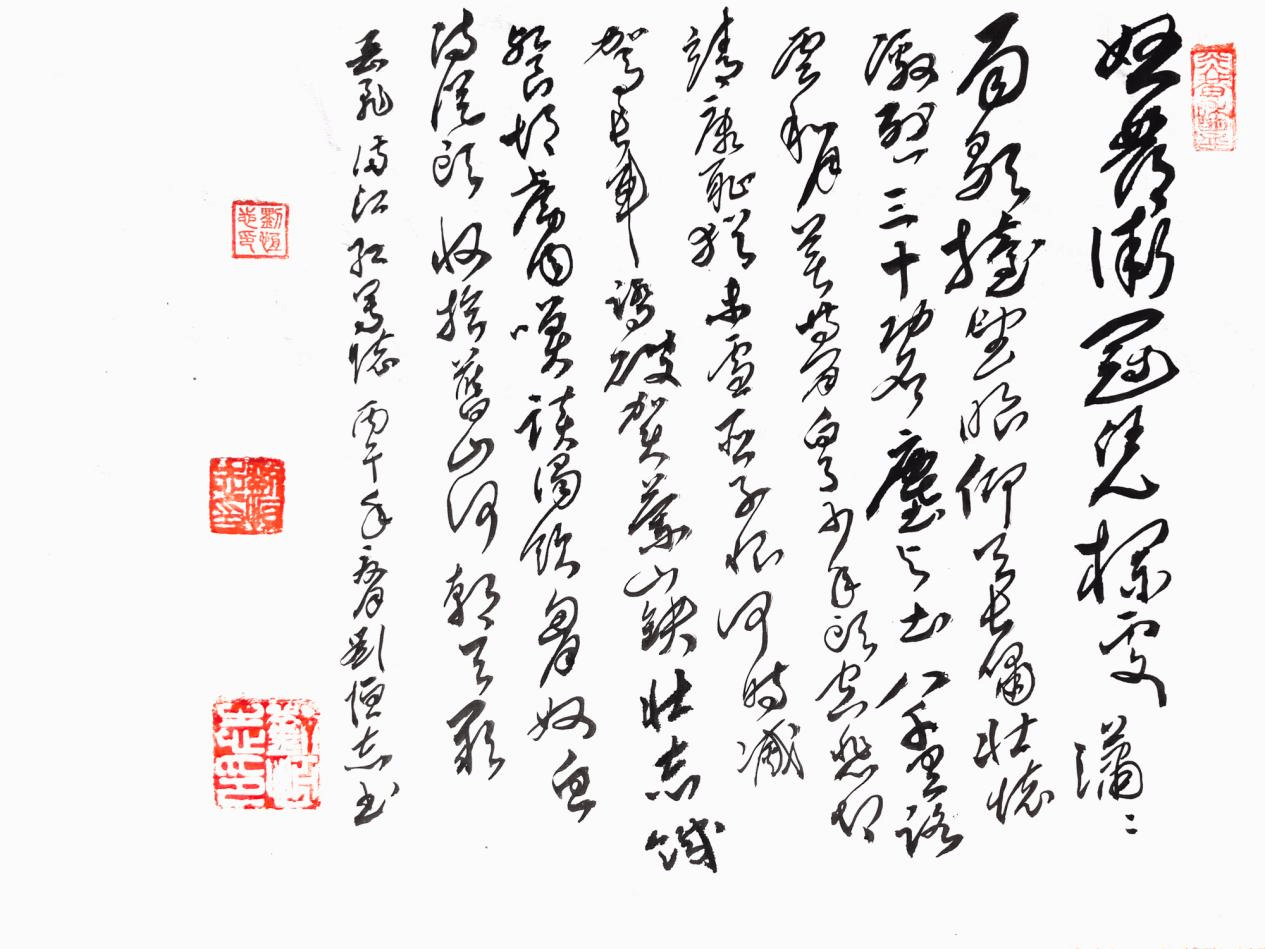 怒髮衝冠凭欄處瀟〻
雨歇擡望眼仰天長嘯壯懷
激烈三十功名塵与土八千里路
雲和月莫等閒白了少年頭空悲切
靖康恥猶未雪臣子恨何時滅
駕長車踏破賀蘭山缺壯志饑
餐胡虜肉笑談渴飲匈奴血
待從頭收拾舊山河朝天闕
岳飛滿江紅寫懷 丙午年春劉恒志書
劉恒志印
劉恒志印
劉恒志印